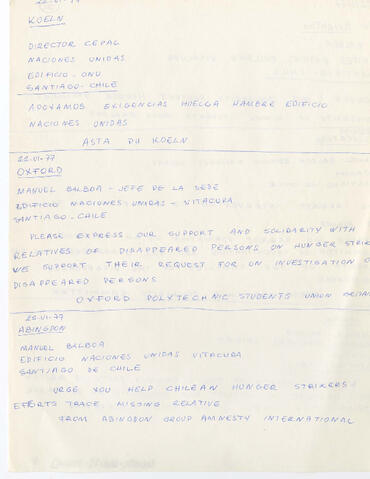 22-VI-77
KOELN
DIRECTOR CEPAL
NACIONES UNIDAS
EDIFICIO - ONU
SANTIAGO - CHILE
APOYAMOS EXIGENCIAS HUELGA HAMBRE EDIFICIO
NACIONES UNIDAS
ASTA PH KOELN
22-VI-77
OXFORD
MANUEL BALBOA - JEFE DE LA SEDE
EDIFICIO NACIONES UNIDAS - VITACURA
SANTIAGO - CHILE
PLEASE EXPRESS OUR SUPPORT AND SOLIDARITY WITH
RELATIVES OF DISAPPEARED PERSONS ON HUNGER STRIK
WE SUPPORT THEIR REQUEST FOR UN INVESTIGATION O
DISAPPEARED PERSONS
OXFORD POLYTECHNIC STUDENTS UNION
22-VI-77
ABINGDON
MANUEL BALBOA
EDIFICIO NACIONES UNIDAS VITACURA
SANTIAGO DE CHILE
URGE YOU HELP CHILEAN HUNGER STRIKERS
EFFORTS TRACE MISSING RELATIVE
FROM ABINGDON GROUP AMNESTY INTERNATIONAL